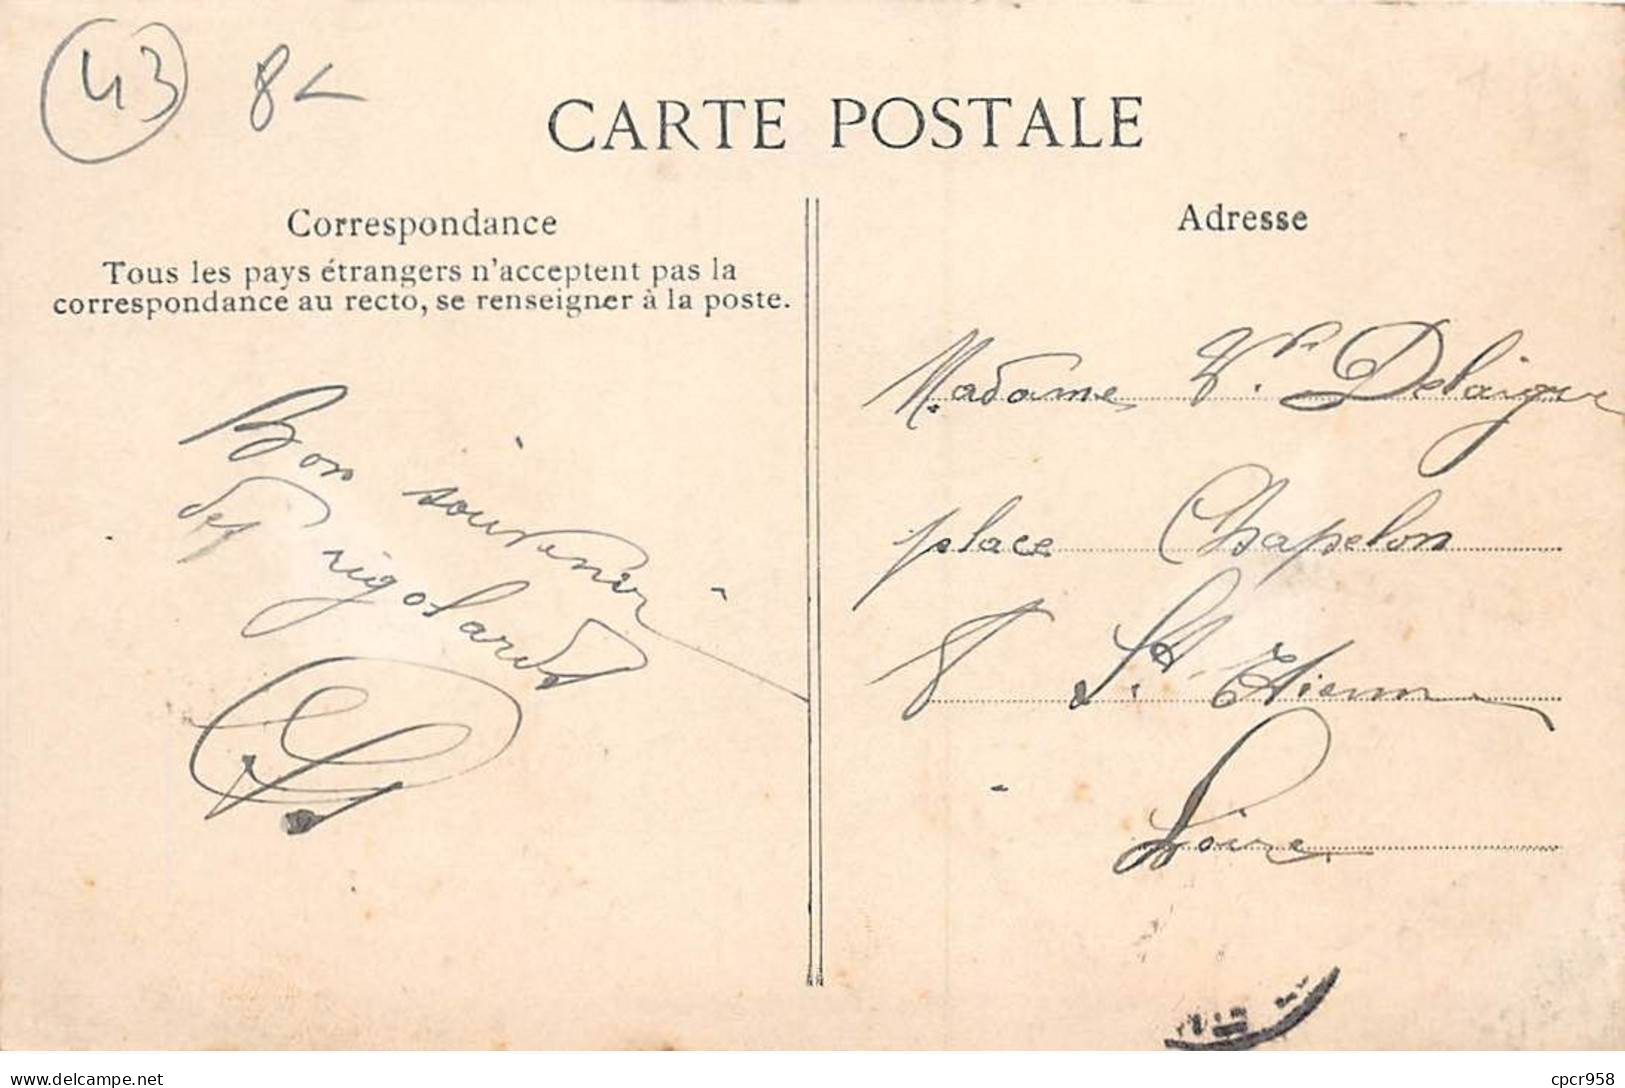 43 8
CARTE POSTALE
Correspondance
Tous les pays étrangers n'acceptent pas la
correspondance au recto, se renseigner à la poste.
Bon souvenir
des rigolards
Adresse
Madame Vve Delaigue
place Chapelon
8 St. Etienne
Loire
delcampe.net
cpcr958